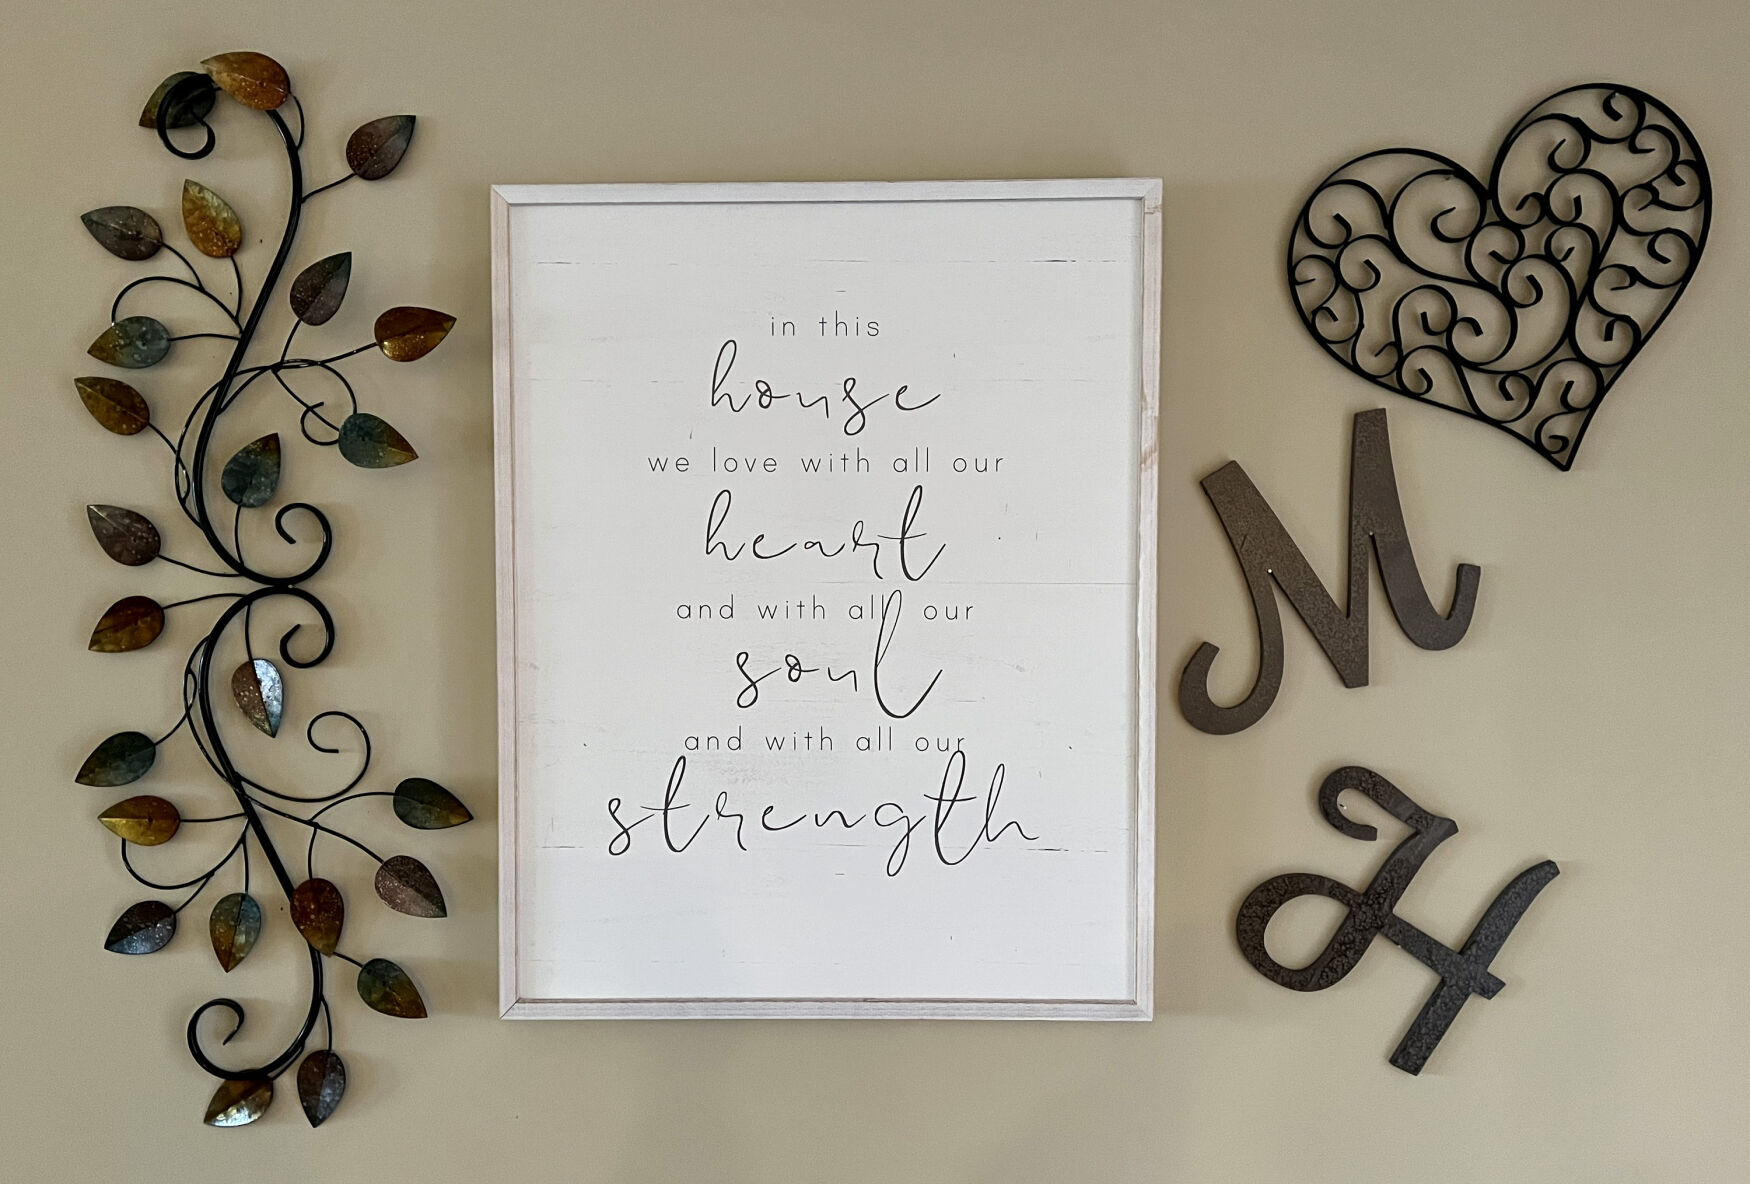 in this
house
we love with all our
heart
and with all our
soul
and with all our
strength
M
H